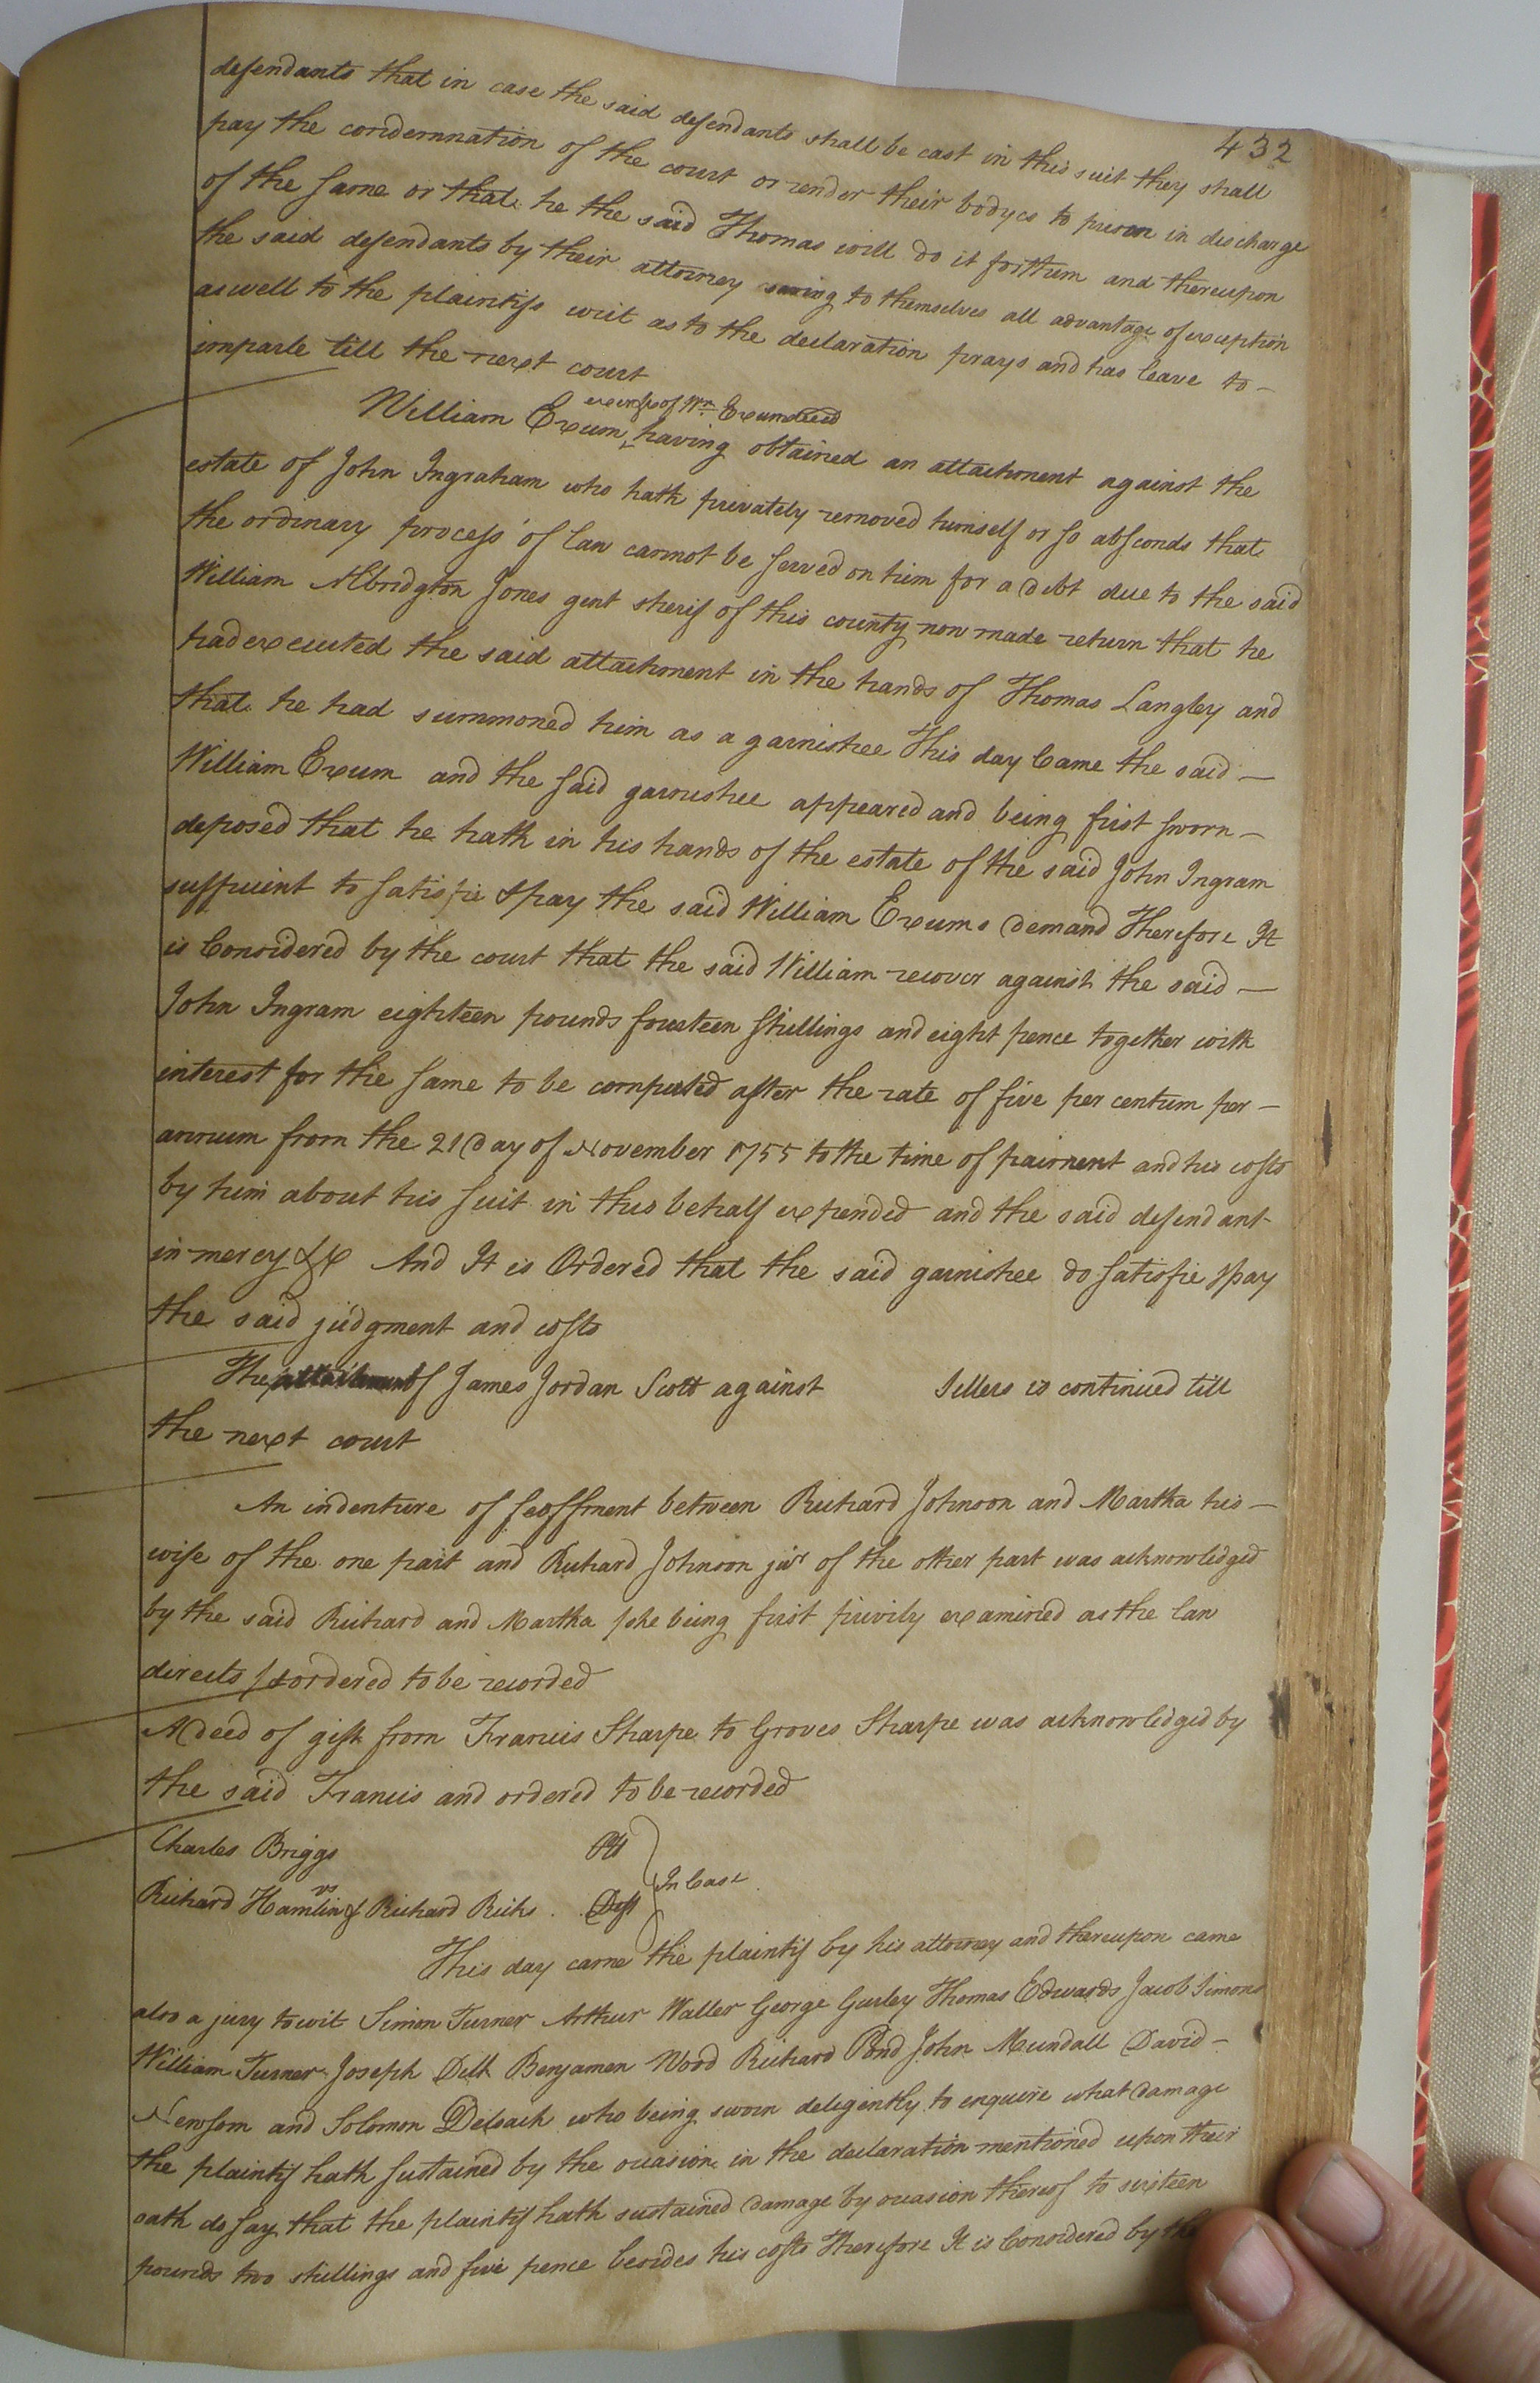 432
defendants that in case the said defendants shall be cast in this suit they shall
pay the condemnation of the court or render their bodyes to prison in discharge
of the same or that he the said Thomas will do it for them and thereupon
the said defendants by their attorney saving to themselves all advantage of exception
aswell to the plaintifs writ as to the declaration prays and has leave to –
imparle till the next court
exer of Wm Exum decd
William Exum ‸ having obtained an attachment against the
estate of John Ingraham who hath privately removed himself or so absconds that
the ordinary process of law cannot be served on him for a debt due to the said
William Albridgton Jones gent sherif of this county now made return that he
had executed the said attachment in the hands of Thomas Langley and
that he had summoned him as a garnishee This day Came the said –
William Exum and the said garnishee appeared and being first sworn –
deposed that he hath in his hands of the estate of the said John Ingram
suffucint to satisfie & pay the said William Exums demand Therefore It
is Considered by the court that the said William recover against the said –
John Ingram eighteen pounds fourteen shillings and eight pence together with
interest for the same to be computed after the rate of five per centum per –
annum from the 21 Day of November 1755 to the time of paiment and his costs
by him about his suit in this behalf expended and the said defendant
in mercy &c And It is Ordered that the said garnishee do satisfie & pay
the said judgment and costs
The attachment of James Jordan Scott against Sellers is continued till
the next court
An indenture of feoffment between Richard Johnson and Martha his –
wife of the one part and Richard Johnson junr of the other part was acknowledged
by the said Richard and Martha / she being first privily examined as the law
directs / & ordered to be recorded
A deed of gift from Francis Sharpe to Groves Sharpe was acknowledged by
the said Francis and ordered to be recorded
Charles Briggs Plt
vs In Case
Richard Hamlin & Richard Ricks . Deft
This day came the plaintif by his attorney and thereupon came
also a jury towit Simon Turner Arthur Waller George Gurley Thomas Edwards Jacob Simons
William Turner Joseph Delk Benjamen Wood Richard Pond John Mundall David –
Newsom and Solomon Deloach who being sworn deligently to enquire what damage
the plaintif hath sustained by the occasion in the declaration mentioned upon their
oath do say that the plaintif hath sustained damage by occasion thereof to sixteen
pounds two shillings and five pence besides his costs Therefore It is Considered by the